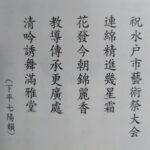 祝水戸市藝術祭大会
連綿精進幾星霜
花發今朝錦麗香
教導傳承更廣處
清吟誘舞滿雅堂
(下平七陽韻)